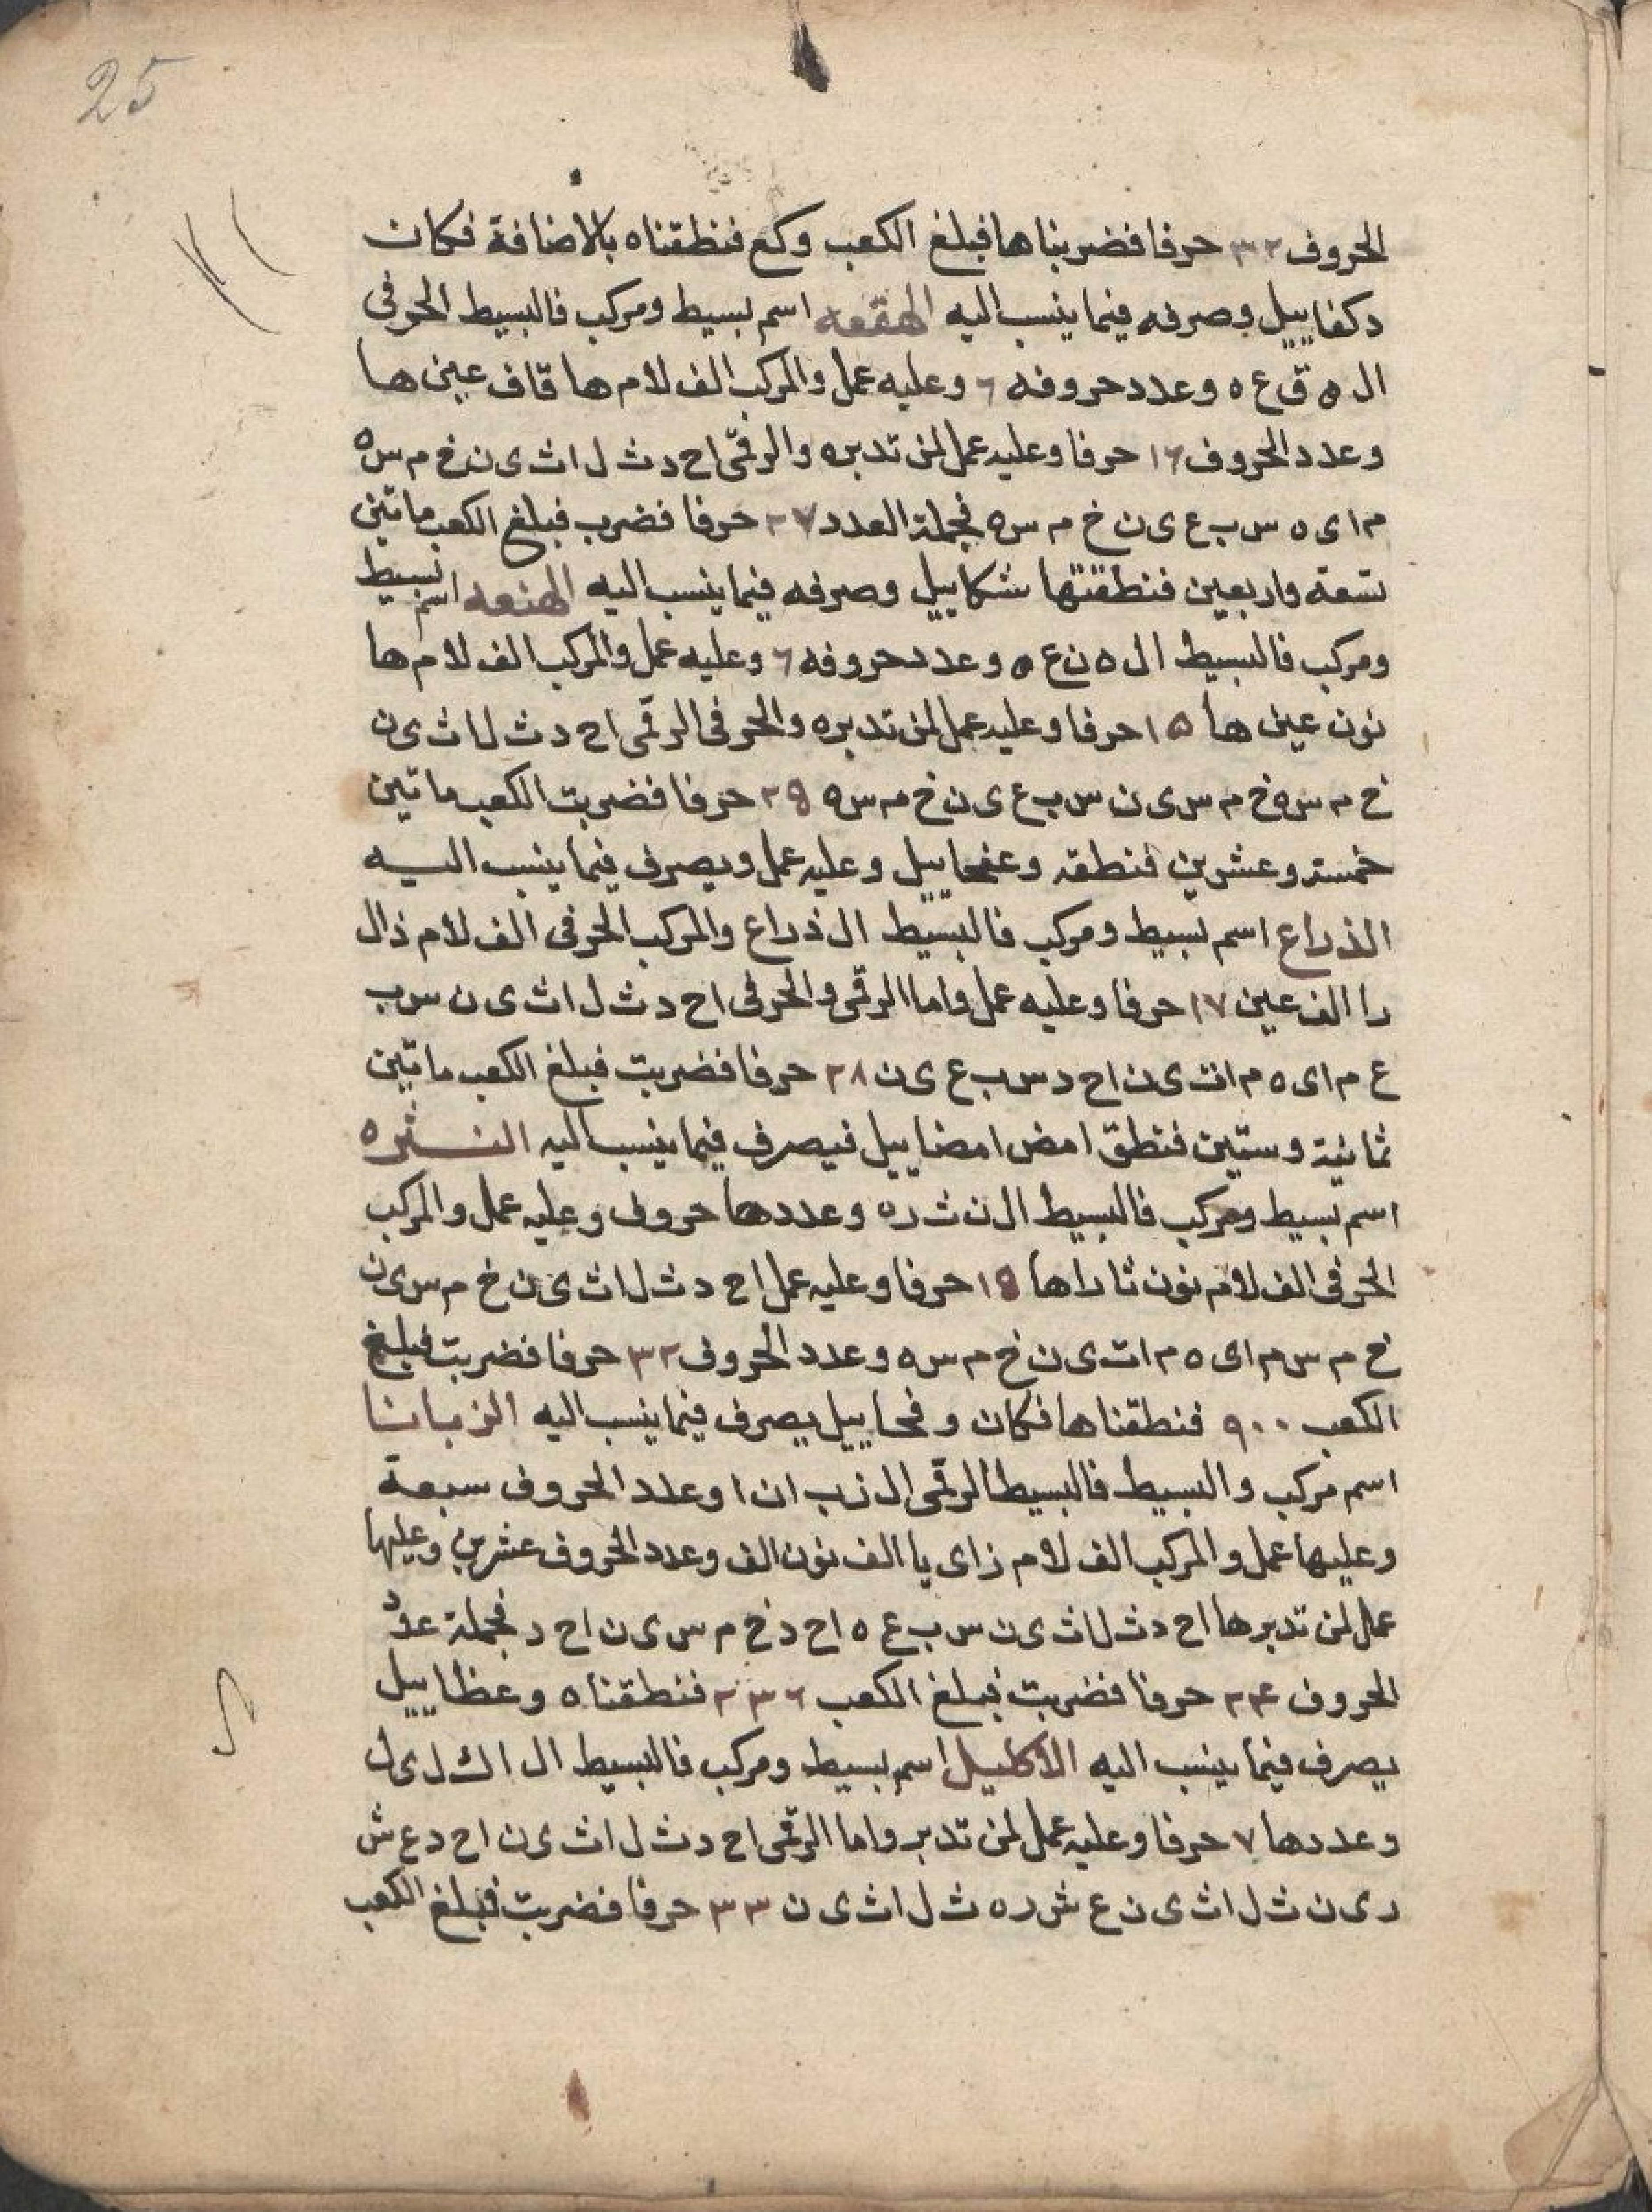 25
الحروف ٣٢ حرفا فضربناها فبلغ الكعب وكع فنطقناه بالاضافة فكان
دكفاييل وصرفه فيما ينسب اليه الهقعه اسم بسيط ومركب فالبسيط الحرفى
ال ه ق ع ه وعدد حروفه ٦ وعليه عمل والمركب الف لام ها قاف عين ها
وعدد الحروف ١٦ حرفا وعليه عمل لمن تدبره والرقمى ا ح د ث ل ا ث ى ن خ م س ه
م ا ى ه س ب ع ى ن خ م س ه فجملة العدد ٢٧ حرفا فضرب فبلغ الكعب ماتين
تسعة واربعين فنطقتها شكاييل وصرفه فيما ينسب اليه الهنعه اسم بسيط
ومركب فالبسيط ال ه ن ع ه وعدد حروفه ٦ وعليه عمل والمركب الف لام ها
نون عين ها ١٥ حرفا وعليه عمل لمن تدبره والحرفى الرقمى ا ح د ث ل ا ث ى ن
خ م س ه خ م س ى ن س ب ع ى ن خ م س ه حرفا فضربت الكعب ماتين
خمسة وعشرين فنطقه وعليه عمل ويصرف فيما ينسب اليه
الذراع اسم بسيط ومركب فالبسيط ال ذ ر ا ع والمركب الحرفى الف لام ذال
را الف عين ١٧ حرفا وعليه عمل واما الرقمى والحرفى ا ح د ث ل ا ث ى ن س ب
ع م ا ى ه م ا ت ى ن ا ح د س ب ع ى ن ٢٨ حرفا فضربت فبلغ الكعب ماتين
ثمانية وستين فنطق امض امضاييل فيصرف فيما ينسب اليه النثره
اسم بسيط ومركب فالبسيط ال ن ث ر ه وعددها حروف وعليه عمل والمركب
الحرفى الف لام نون ثا را ها حرفا وعليه عمل ا ح د ث ل ا ث ى ن خ م س ى ن
خ م س م ا ى ه م ا ت ى ن خ م س ه وعدد الحروف ٣٢ حرفا فضربت فبلغ
الكعب ٩٠٠ فنطقناها فكان وفحاييل يصرف فيما ينسب اليه الزبانا
اسم مركب والبسيط فالبسيط الرقمى ال ز ب ا ن ا وعدد الحروف سبعة
وعليها عمل والمركب الف لام زاى با الف نون الف وعدد الحروف عشرين وعليها
عمل لمن تدبرها ا ح د ث ل ا ث ى ن س ب ع ه ا ح د خ م س ى ن ا ح د فجملة عدد
الحروف ٢٤ حرفا فضربت فبلغ الكعب ٢٣٦ فنطقناه وعظاييل
يصرف فيما ينسب اليه الاكليل اسم بسيط ومركب فالبسيط ال ا ك ل ى ل
وعددها ٧ حرفا وعليه عمل لمن تدبر واما الرقمى ا ح د ث ل ا ث ى ن ا ح د ع ش
ر ى ن ث ل ا ث ى ن ع ش ر ه ث ل ا ث ى ن ٣٣ حرفا فضربت فبلغ الكعب